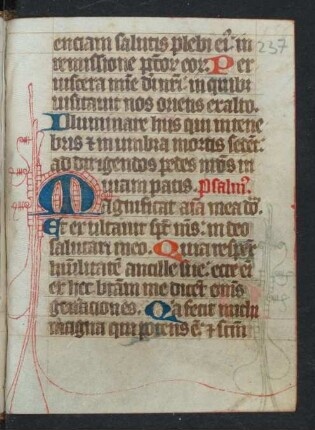 enciam salutis plebi ei⁹ in
remissione pctor eor. Per
uiscera mīe dī nr̄i in quib⁹
uisitauit nos oriens ex alto.
Illuminare hiis qui in tene
bris ⁊ in umbra mortis sedēt
ad dirigendos pedes nr̄os in
uiam pacis. Psalm⁹.
Magnificat aīa mea dō.
Et exultauit sp̄c m̄s in deo
salutari meo. Quia respex̄
humilitatē ancille sue ecce eī
ex hec btām me dicēt om̄s
generaciones. Qa fecit michi
magna qui potens ē ⁊ scm̄
237